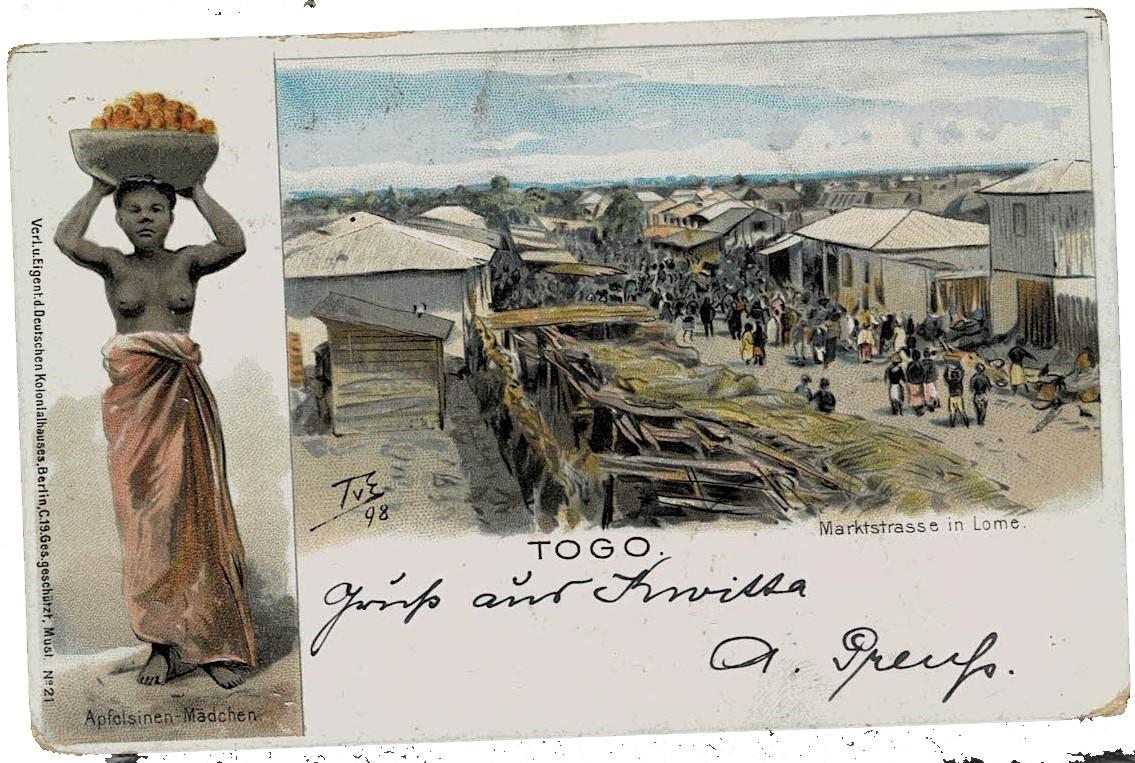 Verl.u.Eigent.d.Deutschen Kolonialhauses,Berlin,C.19.Ges.geschützt, Must. No 21
Apfelsinen-Mädchen
TvE
98
Marktstrasse in Lome.
TOGO.
Gruß aus Kwitta
A. Preuß.